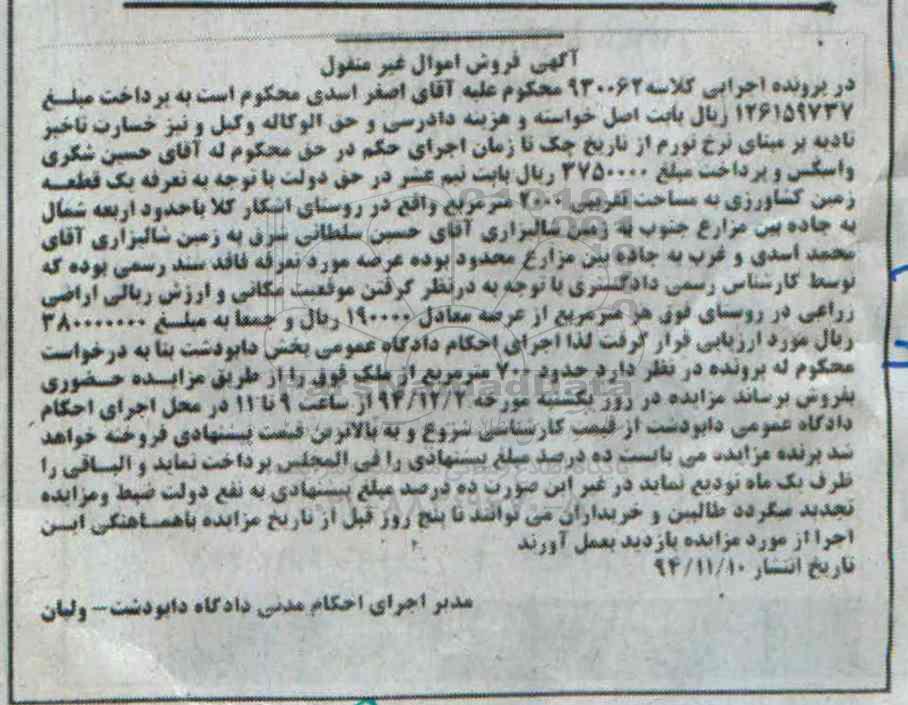 آگهی فروش اموال غیر منقول
در پرونده اجرایی کلاسه ۹۳۰۰۶۲ محکوم علیه آقای اصغر اسدی محکوم است به پرداخت مبلغ
۱۲۶۱۵۹۷۳۷ ریال بابت اصل خواسته و هزینه دادرسی و حق الوکاله وکیل و نیز خسارت تاخیر
تادیه بر مبنای نرخ تورم از تاریخ چک تا زمان اجرای حکم در حق محکوم له آقای حسین شکری
واسکس و پرداخت مبلغ ۳۷۵۰۰۰۰ ریال بابت نیم عشر در حق دولت با توجه به تعرفه یک قطعه
زمین کشاورزی به مساحت تقریبی ۲۰۰۰ مترمربع واقع در روستای اشکار کلا باحدود اربعه شمال
به جاده بین مزارع جنوب به زمین شالیزاری آقای حسین سلطانی شرق به زمین شالیزاری آقای
محمد اسدی و غرب به جاده بین مزارع محدود بوده عرصه مورد تعرفه فاقد سند رسمی بوده که
توسط کارشناس رسمی دادگستری با توجه به درنظر گرفتن موقعیت مکانی و ارزش ریالی اراضی
زراعی در روستای فوق هر مترمربع از عرصه معادل ۱۹۰۰۰۰ ریال و جمعا به مبلغ ۳۸۰۰۰۰۰۰۰
ریال مورد ارزیابی قرار گرفت لذا اجرای احکام دادگاه عمومی بخش دابودشت بنا به درخواست
محکوم له پرونده در نظر دارد حدود ۷۰۰ مترمربع از ملک فوق را از طریق مزایده حضوری
بفروش برساند مزایده در روز یکشنبه مورخه ۹۴/۱۲/۲ از ساعت ۹ تا ۱۱ در محل اجرای احکام
دادگاه عمومی دابودشت از قیمت کارشناسی شروع و به بالاترین قیمت پیشنهادی فروخته خواهد
شد برنده مزایده می بایست ده درصد مبلغ پیشنهادی را فی المجلس پرداخت نماید و الباقی را
ظرف یک ماه تودیع نماید در غیر این صورت ده درصد مبلغ پیشنهادی به نفع دولت ضبط ومزایده
تجدید میگردد طالبین و خریداران می توانند تا پنج روز قبل از تاریخ مزایده باهماهنگی این
اجرا از مورد مزایده بازدید بعمل آورند
تاریخ انتشار ۹۴/۱۱/۱۰
مدیر اجرای احکام مدنی دادگاه دابودشت - ولیان
ParsNamadData